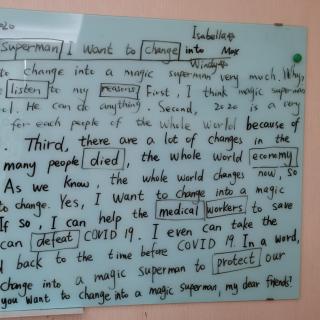 2020
Isabella
Superman I want to change into Max
Windy
to change into a magic superman very much. Why,
listen to my reasons! First, I think magic superman
ol. He can do anything. Second, 2020 is a very
for each people of the whole world because of
. Third, there are a lot of changes in the
many people died, the whole world economy
As we know, the whole world changes now, so
to change. Yes, I want to change into a magic
If so, I can help the medical workers to save
can defeat COVID 19. I even can take the
d back to the time before COVID 19. In a word,
change into a magic superman to protect our
you want to change into a magic superman, my dear friends!